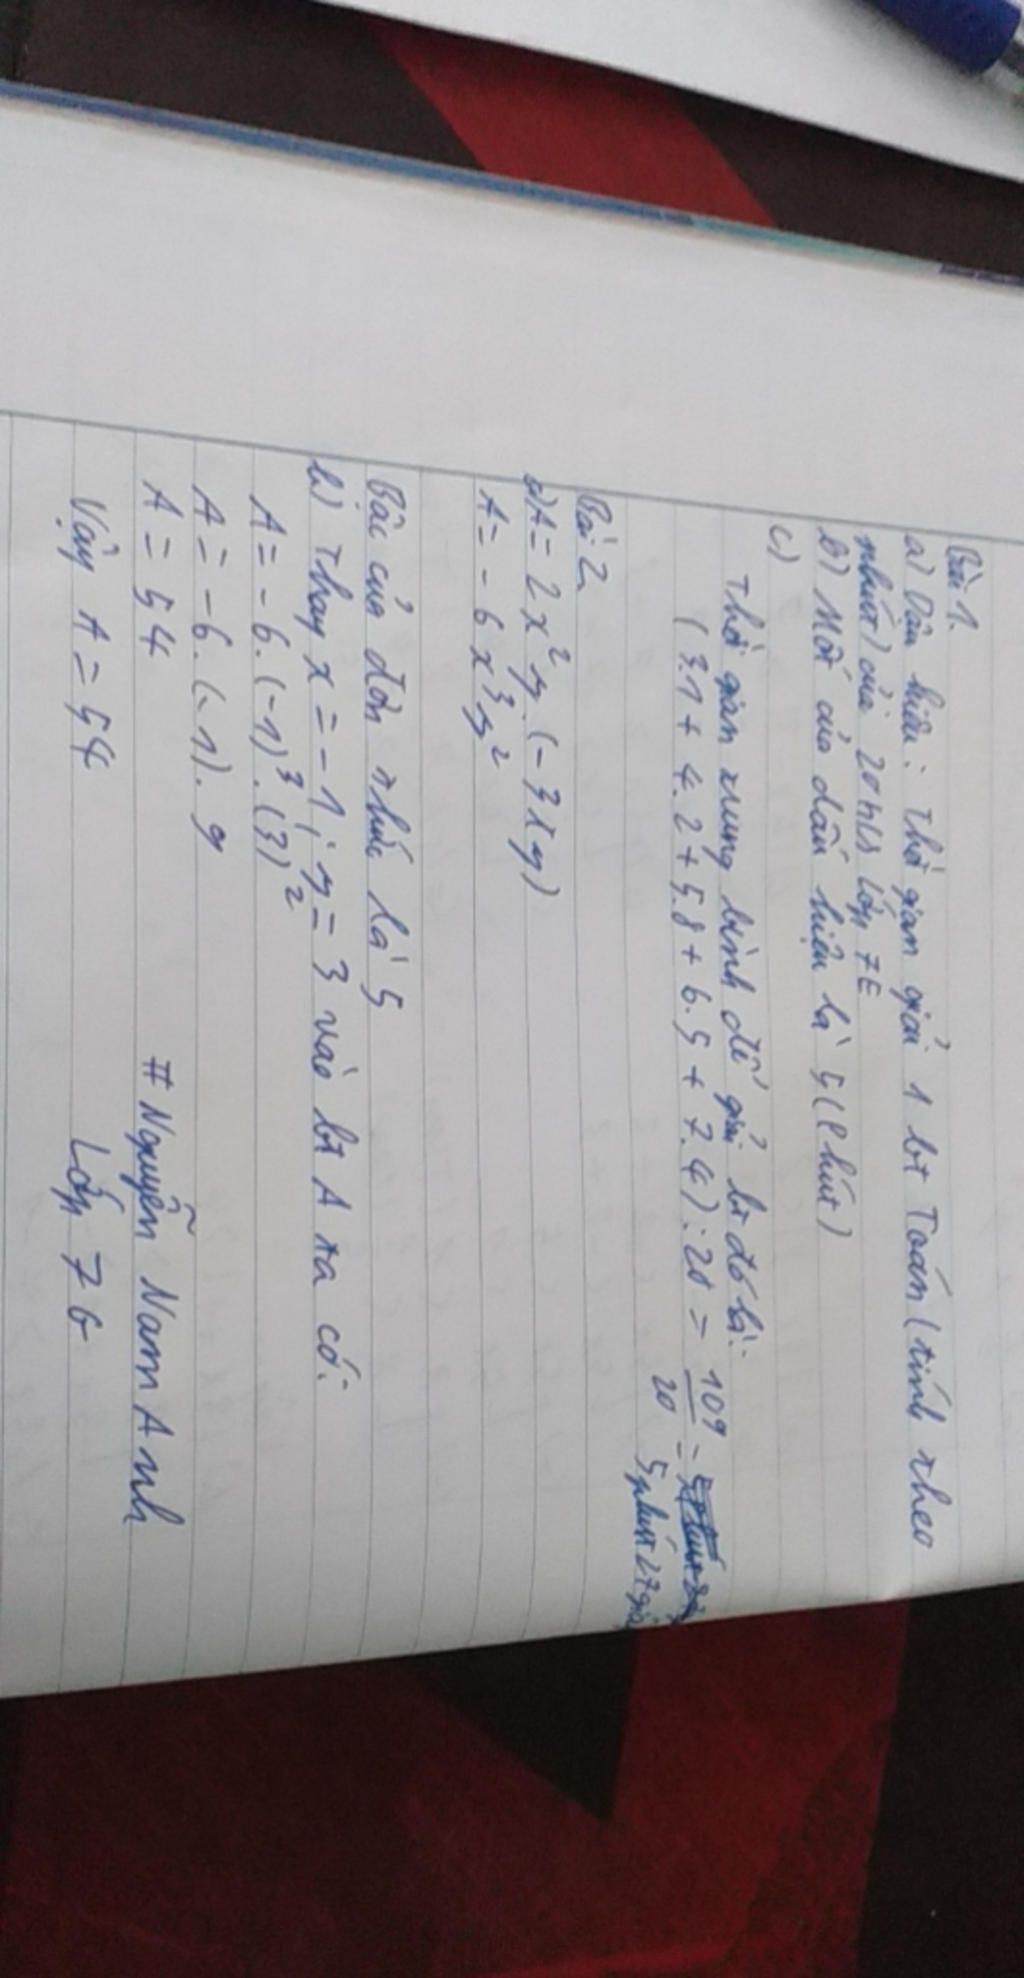 Bài 1.
a) Dấu hiệu: Thời gian giải 1 bt Toán (tính theo
phút) của 20 hs lớp 7E
b) Mốt của dấu hiệu là 5 (Phút)
c)
Thời gian trung bình để giải bt đó là:
(3.1 + 4.2 + 5.8 + 6.5 + 7.4) : 20 = 109/20 = 5 phút 27 giây
Bài 2.
a) A = 2x²y.(-3xy)
A = -6x³y²
Bậc của đơn thức là 5
b) Thay x = -1; y = 3 vào bt A ta có:
A = -6.(-1)³.(3)²
A = -6.(-1).9
A = 54
Vậy A = 54
# Nguyễn Nam Anh
Lớp 7G